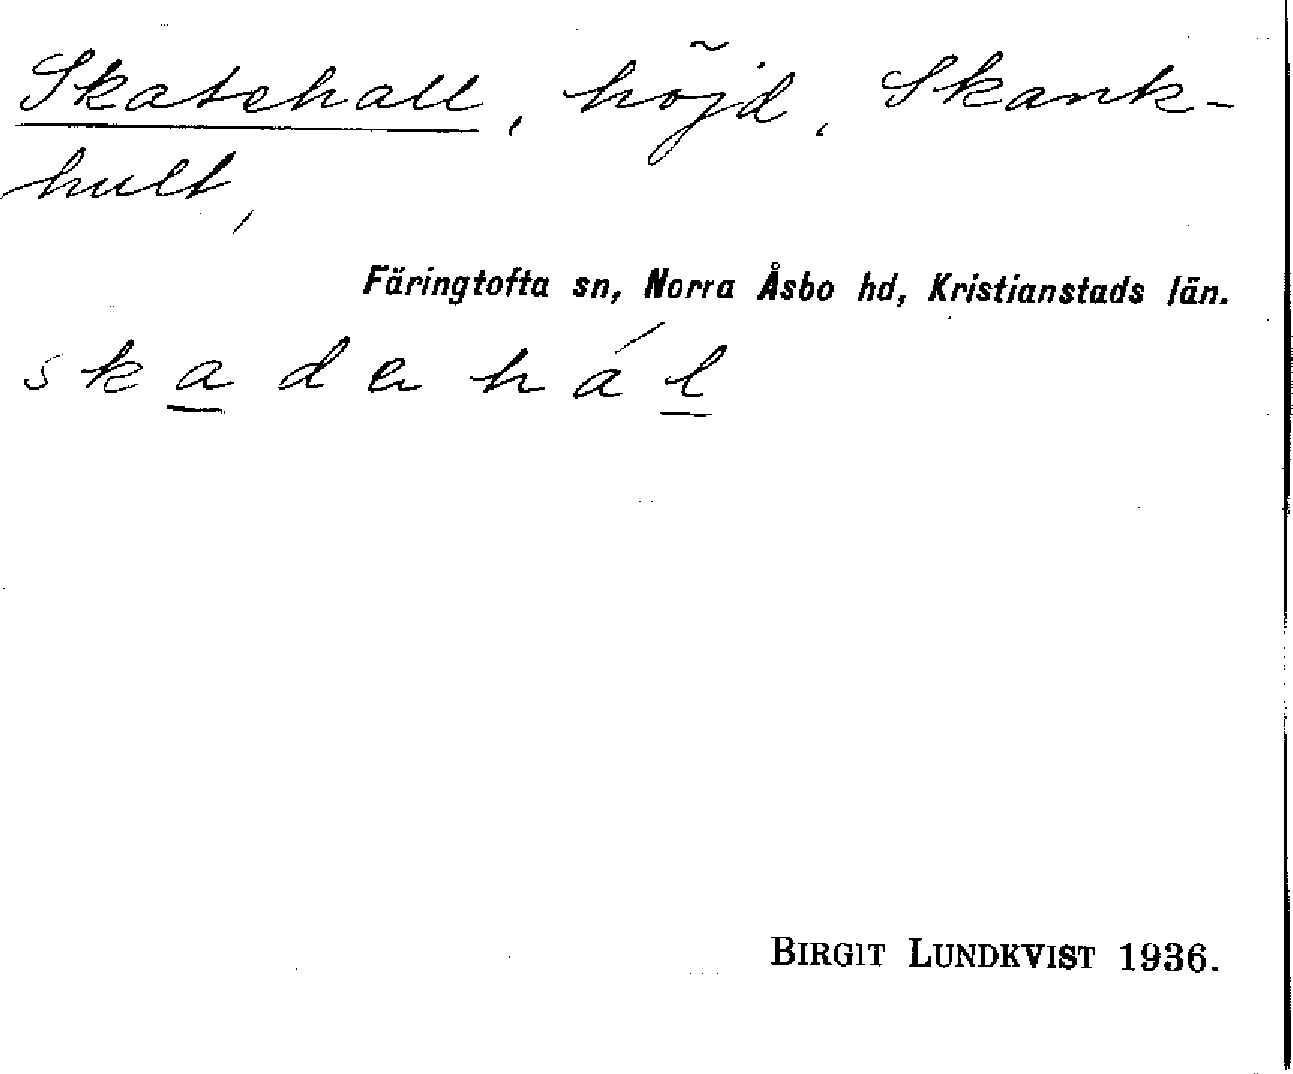 Skatehall, höjd, Skank-
hult,
Färingtofta sn, Norra Åsbo hd, Kristianstads län.
skadahál
BIRGIT LUNDKVIST 1936.